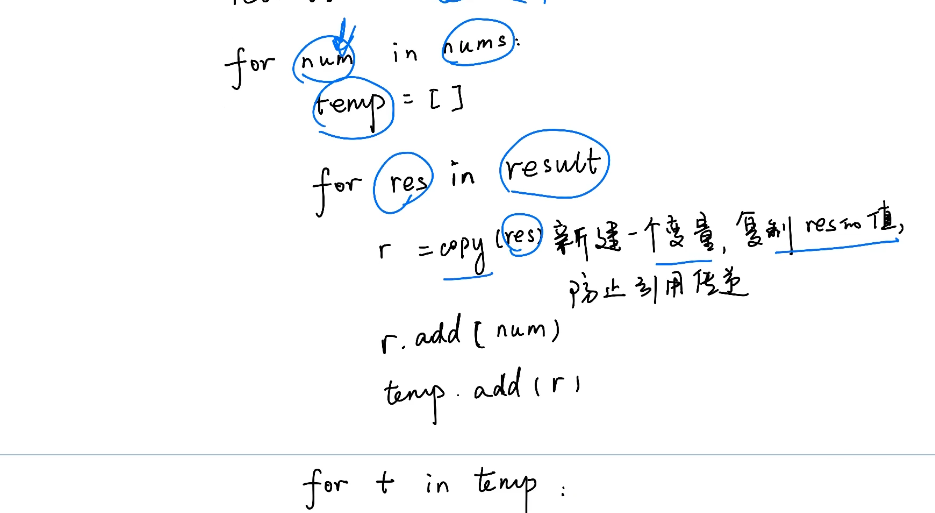 for num in nums:
temp = [ ]
for res in result
r = copy (res) 新建一个变量, 复制 res的值,
防止引用传递
r. add ( num )
temp. add ( r )
for t in temp :